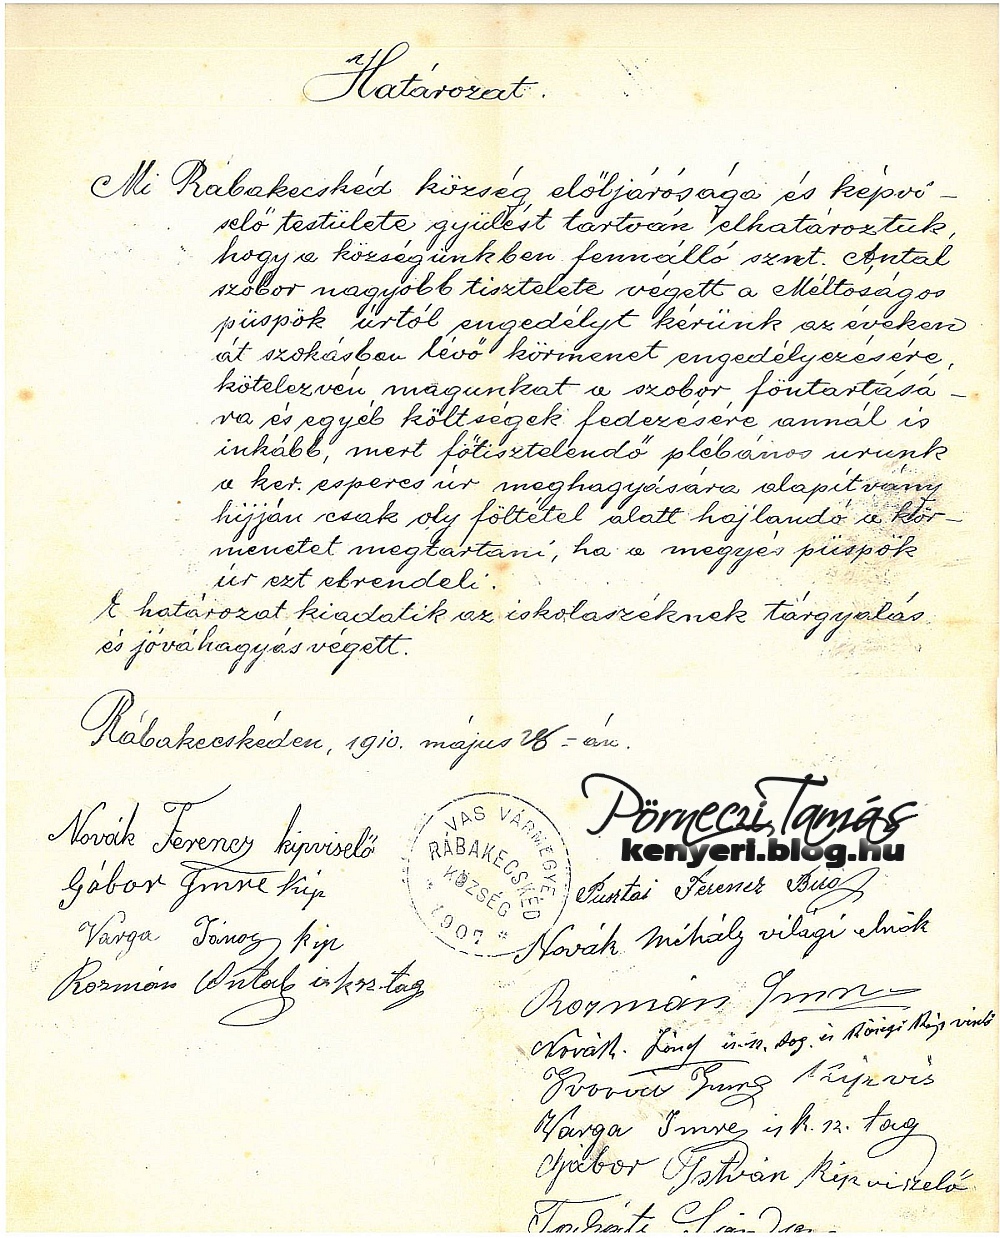 Határozat.
Mi Rábakecskéd község előljárósága és képvi-
selő testülete gyülést tartván elhatároztuk,
hogy a községünkben fennálló sznt. Antal
szobor nagyobb tisztelete végett a Méltoságos
püspök úrtól engedélyt kérünk az éveken
át szokásban lévő körmenet engedélyezésére,
kötelezvén magunkat a szobor föntartásá-
ra és egyéb költségek fedezésére annál is
inkább, mert főtisztelendő plébános urunk
a ker. esperes úr meghagyására alapítvány
hijján csak oly föltétel alatt hajlandó a kör-
menetet megtartani, ha a megyés püspök
úr ezt elrendeli.
E határozat kiadatik az iskolaszéknek tárgyalás
és jóváhagyás végett.
Rábakecskéden, 1910. május 28-án.
Novák Ferencz képviselő
Gábor Imre kép
Varga János kép
Rozmán Antal isksz. tag
VAS VÁRMEGYE
RÁBAKECSKÉD
KÖZSÉG
1907
Pörneczi Tamás
kenyeri.blog.hu
Pusztai Ferencz Biró
Novák Mihály világi elnök
Rozmán Imre
Novák
Imre képvis
Varga Imre isk. sz. tag
Gábor István képviselő